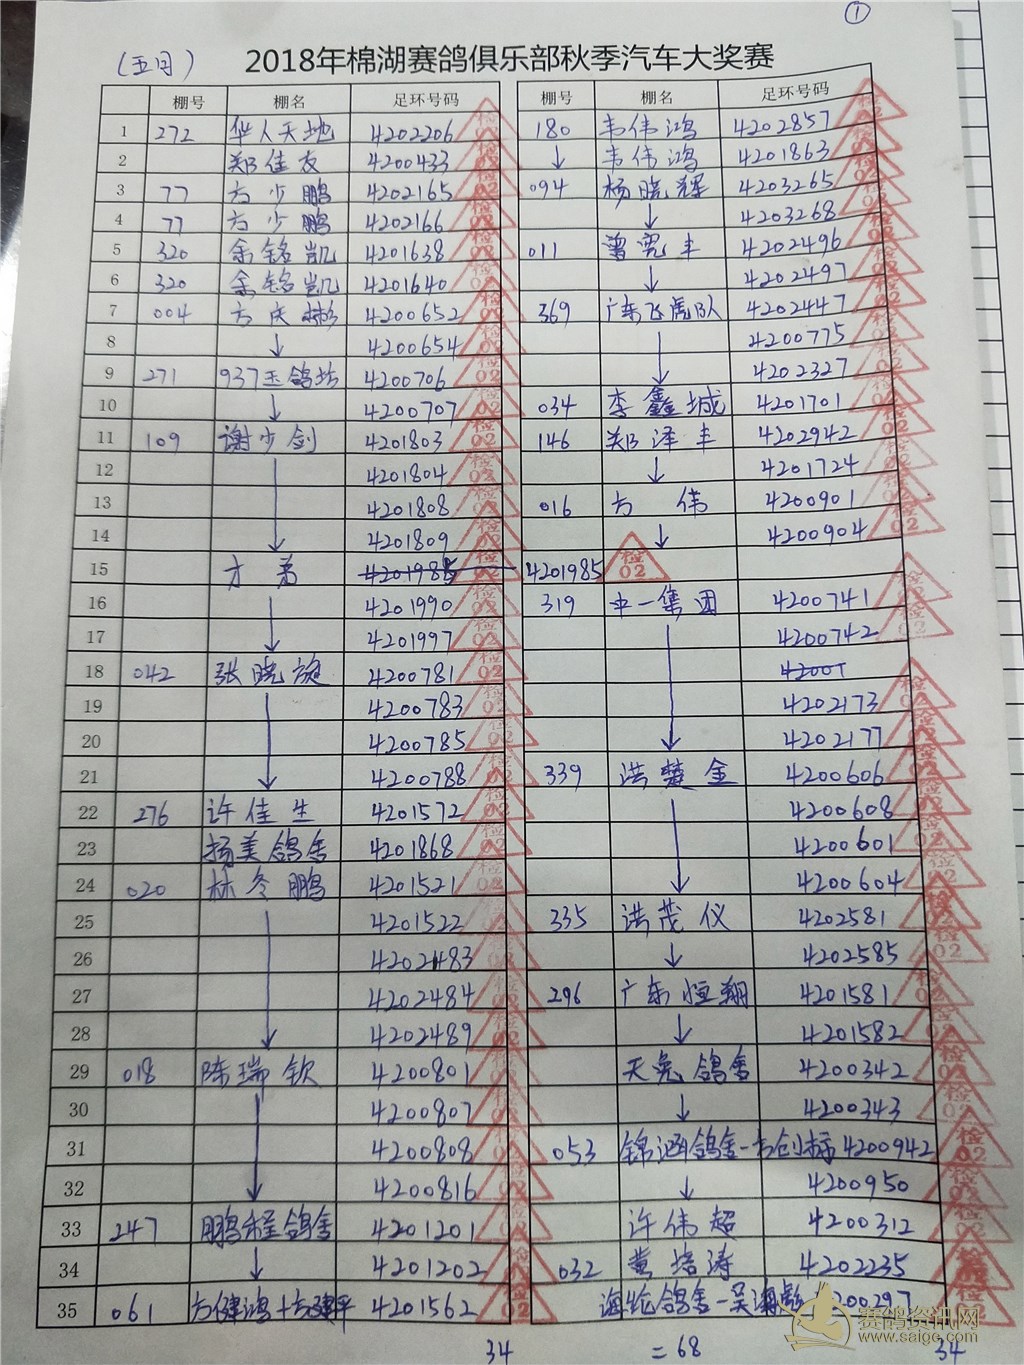 ①
(五关) 2018年棉湖赛鸽俱乐部秋季汽车大奖赛
棚号 棚名 足环号码 棚号 棚名 足环号码
1 272 华人天地 4202206 180 韦伟鸿 4202857
2 郑佳友 4200433 ↓ 韦伟鸿 4201863
3 77 方少鹏 4202165 094 杨晓辉 4203265
4 77 方少鹏 4202166 ↓ 4203268
5 320 余铭凯 4201638 011 曾宪丰 4202496
6 320 余铭凯 4201640 ↓ 4202497
7 004 方庆彬 4200652 369 广东飞虎队 4202447
8 ↓ 4200654 4200775
9 271 937玉鸽坊 4200706 ↓ 4202327
10 ↓ 4200707 034 李鑫城 4201701
11 109 谢少剑 4201803 146 郑泽丰 4202942
12 4201804 ↓ 4201724
13 4201808 016 方伟 4200901
14 ↓ 4201809 ↓ 4200904
15 才弟 4201985 4201985
16 4201990 319 中一集团 4200741
17 ↓ 4201997 4200742
18 042 张晓旋 4200781 4200T
19 4200783 4202173
20 4200785 ↓ 4202177
21 ↓ 4200788 339 洪楚金 4200606
22 276 许佳生 4201572 4200608
23 扬美鸽舍 4201868 4200601
24 020 林冬鹏 4201521 ↓ 4200604
25 4201522 335 洪茂仪 4202581
26 4202483 ↓ 4202585
27 4202484 296 广东恒翔 4201581
28 ↓ 4202489 ↓ 4201582
29 018 陈瑞钦 4200801 天兔鸽舍 4200342
30 4200807 ↓ 4200343
31 4200808 053 锦涵鸽舍-方创标 4200942
32 ↓ 4200816 ↓ 4200950
33 247 鹏程鸽舍 4201201 许伟超 4200312
34 ↓ 4201202 032 黄培涛 4202235
35 061 方健鸿+方建平 4201562 海纶鸽舍-吴海彪 4200297
34 =68 34
检 02
赛鸽资讯网
www.saige.com